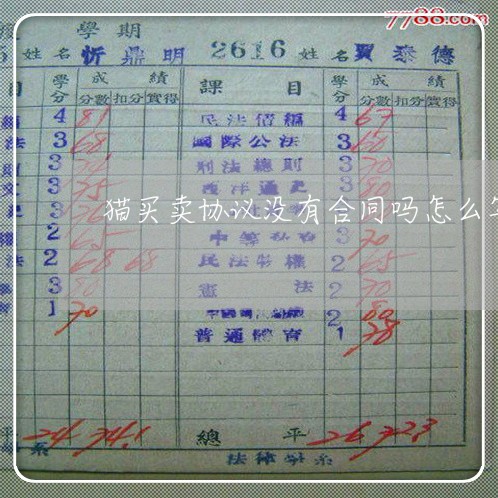 7788.com
學期
姓名 忻鼎明 2616 姓名 賈泰德
目 學分 成績 課目 學分 成績
分數 扣分 實得 分數 扣分 實得
4 81 民法債編 4 67
法 3 68 國際公法 3 60
3 刑法總則 3 70
3 75 西洋通史 3 80
猫买卖协议没有合同吗怎么
2 65 3 70
法 2 68 68 民法物權 2 65
3 80 憲法 2 70
1 70 2 80
普通體育 1 78
平 24 74.1 總平 26 72.3
系 法律學系